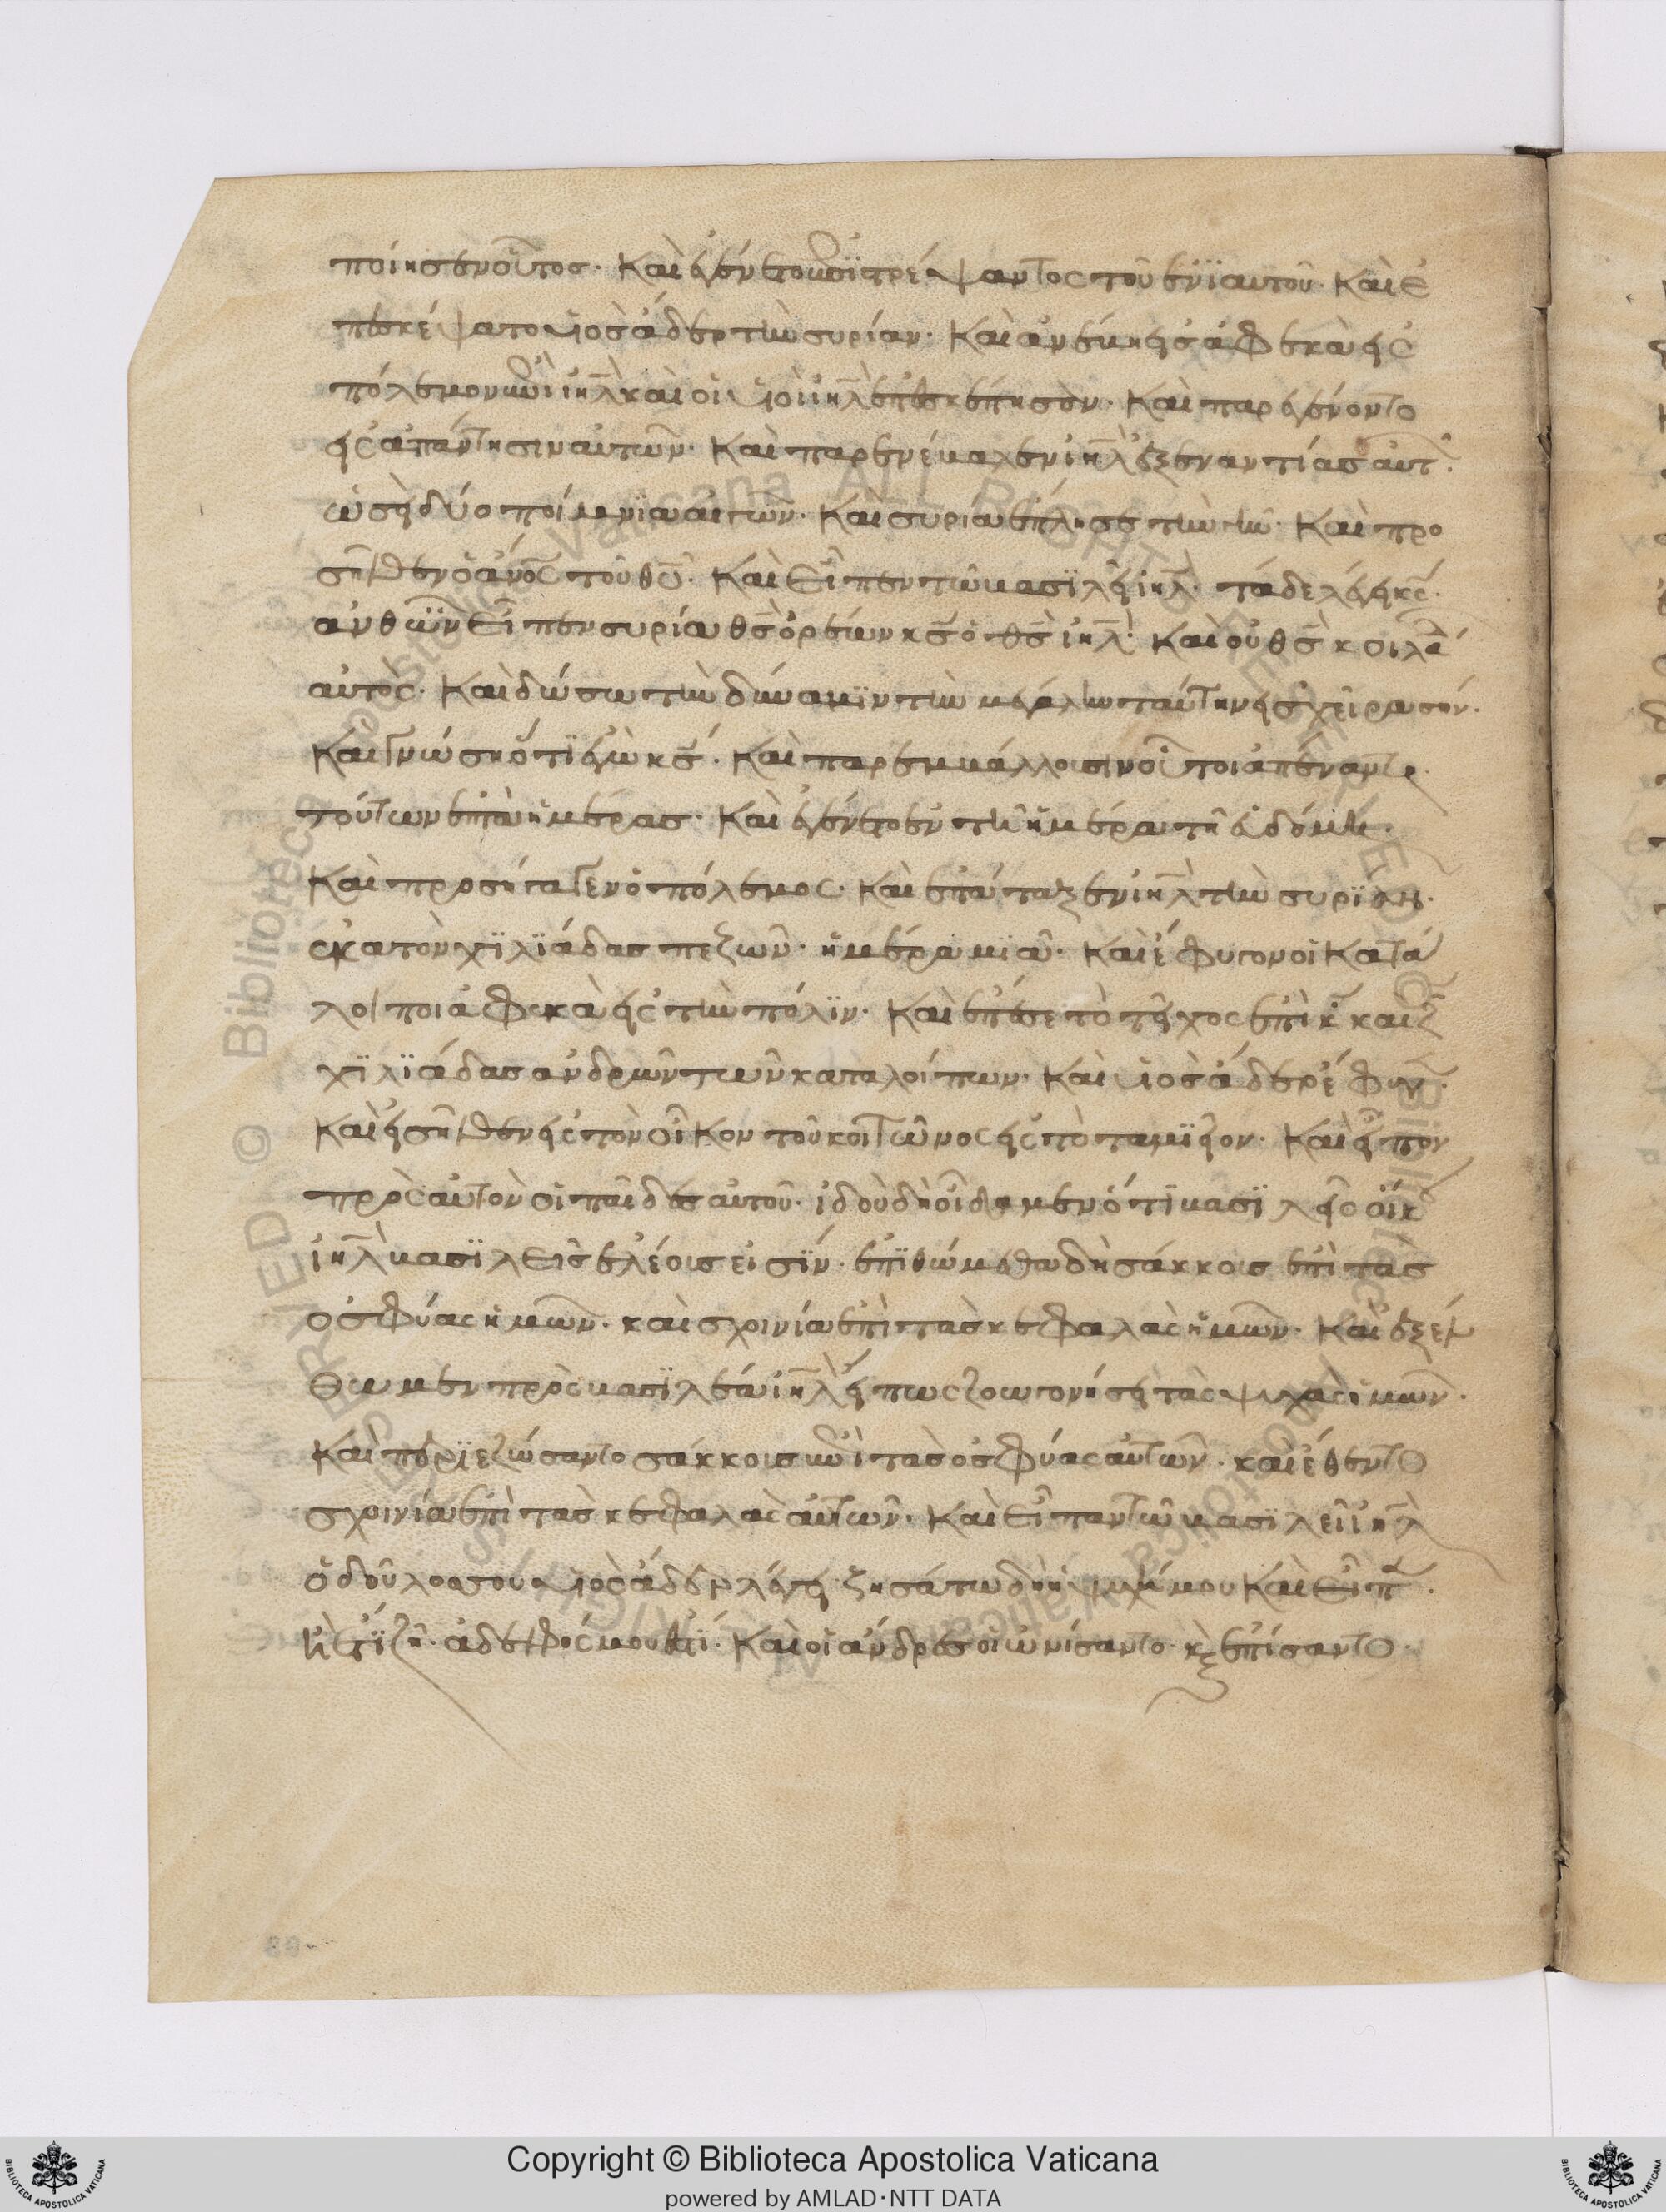 ποίησεν οὕτως. Καὶ ἐγένετο ἐπιστρέψαντος τοῦ ἐνιαυτοῦ. Καὶ ἐ
πεσκέψατο υἱὸς ἄδερ τὴν συρίαν. Καὶ ἀνέβη εἰς ἀφεκὰ εἰς
πόλεμον ἐπὶ ιηλ καὶ οἱ υἱοὶ ιηλ ἐπεσκέπησαν. Καὶ παρεγένοντο
εἰς ἀπάντησιν αὐτῶν. Καὶ παρενέβαλεν ιηλ ἐξεναντίας αὐτ.
ὡσεὶ δύο ποίμνια αἰγῶν. Καὶ συρία ἔπλησε τὴν γῆν. Καὶ προ
σῆλθεν ὁ ἄνος τοῦ θυ. Καὶ εἶπεν τῶ βασιλεῖ ιηλ. τάδε λέγει κς.
ἀνθ ὧν εἶπεν συρία θς ὀρέων κς ὁ θς ιηλ. Καὶ οὐ θς κοιλά
αὐτός. Καὶ δώσω τὴν δύναμιν τὴν μεγάλην ταύτην εἰς χεῖρα σήν.
Καὶ γνώση ὅτι ἐγὼ κς. Καὶ παρεμβάλλουσιν οὗτοι ἀπέναντι
τούτων ἑπτὰ ἡμέρας. Καὶ ἐγένετο ἐν τῆ ἡμέρα τῆ ἑβδόμη.
Καὶ προσήγαγεν ὁ πόλεμος. Καὶ ἐπάταξεν ιηλ τὴν συρίαν.
ἑκατὸν χιλιάδας πεζῶν. ἡμέρα μιᾶ. Καὶ ἔφυγον οἱ κατά
λοιποι ἀφεκὰ εἰς τὴν πόλιν. Καὶ ἔπεσε τὸ τεῖχος ἐπὶ κ καὶ ζ
χιλιάδας ἀνδρῶν τῶν καταλοίπων. Καὶ υἱὸς ἄδερ ἔφυγ.
Καὶ εἰσῆλθεν εἰς τὸν οἶκον τοῦ κοιτῶνος εἰς τὸ ταμιεῖον. Καὶ εἶπον
πρὸς αὐτὸν οἱ παῖδες αὐτοῦ. ἰδοὺ δὴ οἴδαμεν ὅτι βασιλεῖς οἴκ
ιηλ βασιλεῖς ἐλέους εἰσίν. ἐπιθώμεθα δὴ σάκκους ἐπὶ τὰς
ὀσφύας ἡμῶν. καὶ σχοινία ἐπὶ τὰς κεφαλὰς ἡμῶν. Καὶ ἐξέλ
θωμεν πρὸς βασιλέα ιηλ εἴ πως ζωογονήσει τὰς ψυχὰς ἡμῶν.
Καὶ περιεζώσαντο σάκκους ἐπὶ τὰς ὀσφύας αὐτῶν. καὶ ἔθεντο
σχοινία ἐπὶ τὰς κεφαλὰς αὐτῶν. Καὶ εἶπαν τῶ βασιλεῖ ιηλ
ὁ δοῦλος σου υἱὸς ἄδερ λέγει. ζησάτω δὴ ἡ ψυχή μου Καὶ εἶπ.
Εἰ ἔτι ζῆ. ἀδελφός μου ἐστί. Καὶ οἱ ἄνδρες οἰωνίσαντο. κ ἐσπείσαντο.